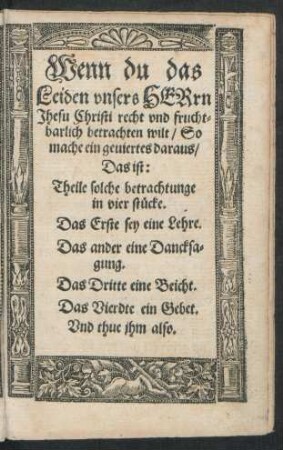 Wenn du das
Leiden vnsers HERrn
Jhesu Christi recht vnd frucht-
barlich betrachten wilt / So
mache ein geuiertes daraus /
Das ist:
Theile solche betrachtunge
in vier stücke.
Das Erste sey eine Lehre.
Das ander eine Dancksa-
gung.
Das Dritte eine Beicht.
Das Vierdte ein Gebet.
Vnd thue jhm also.